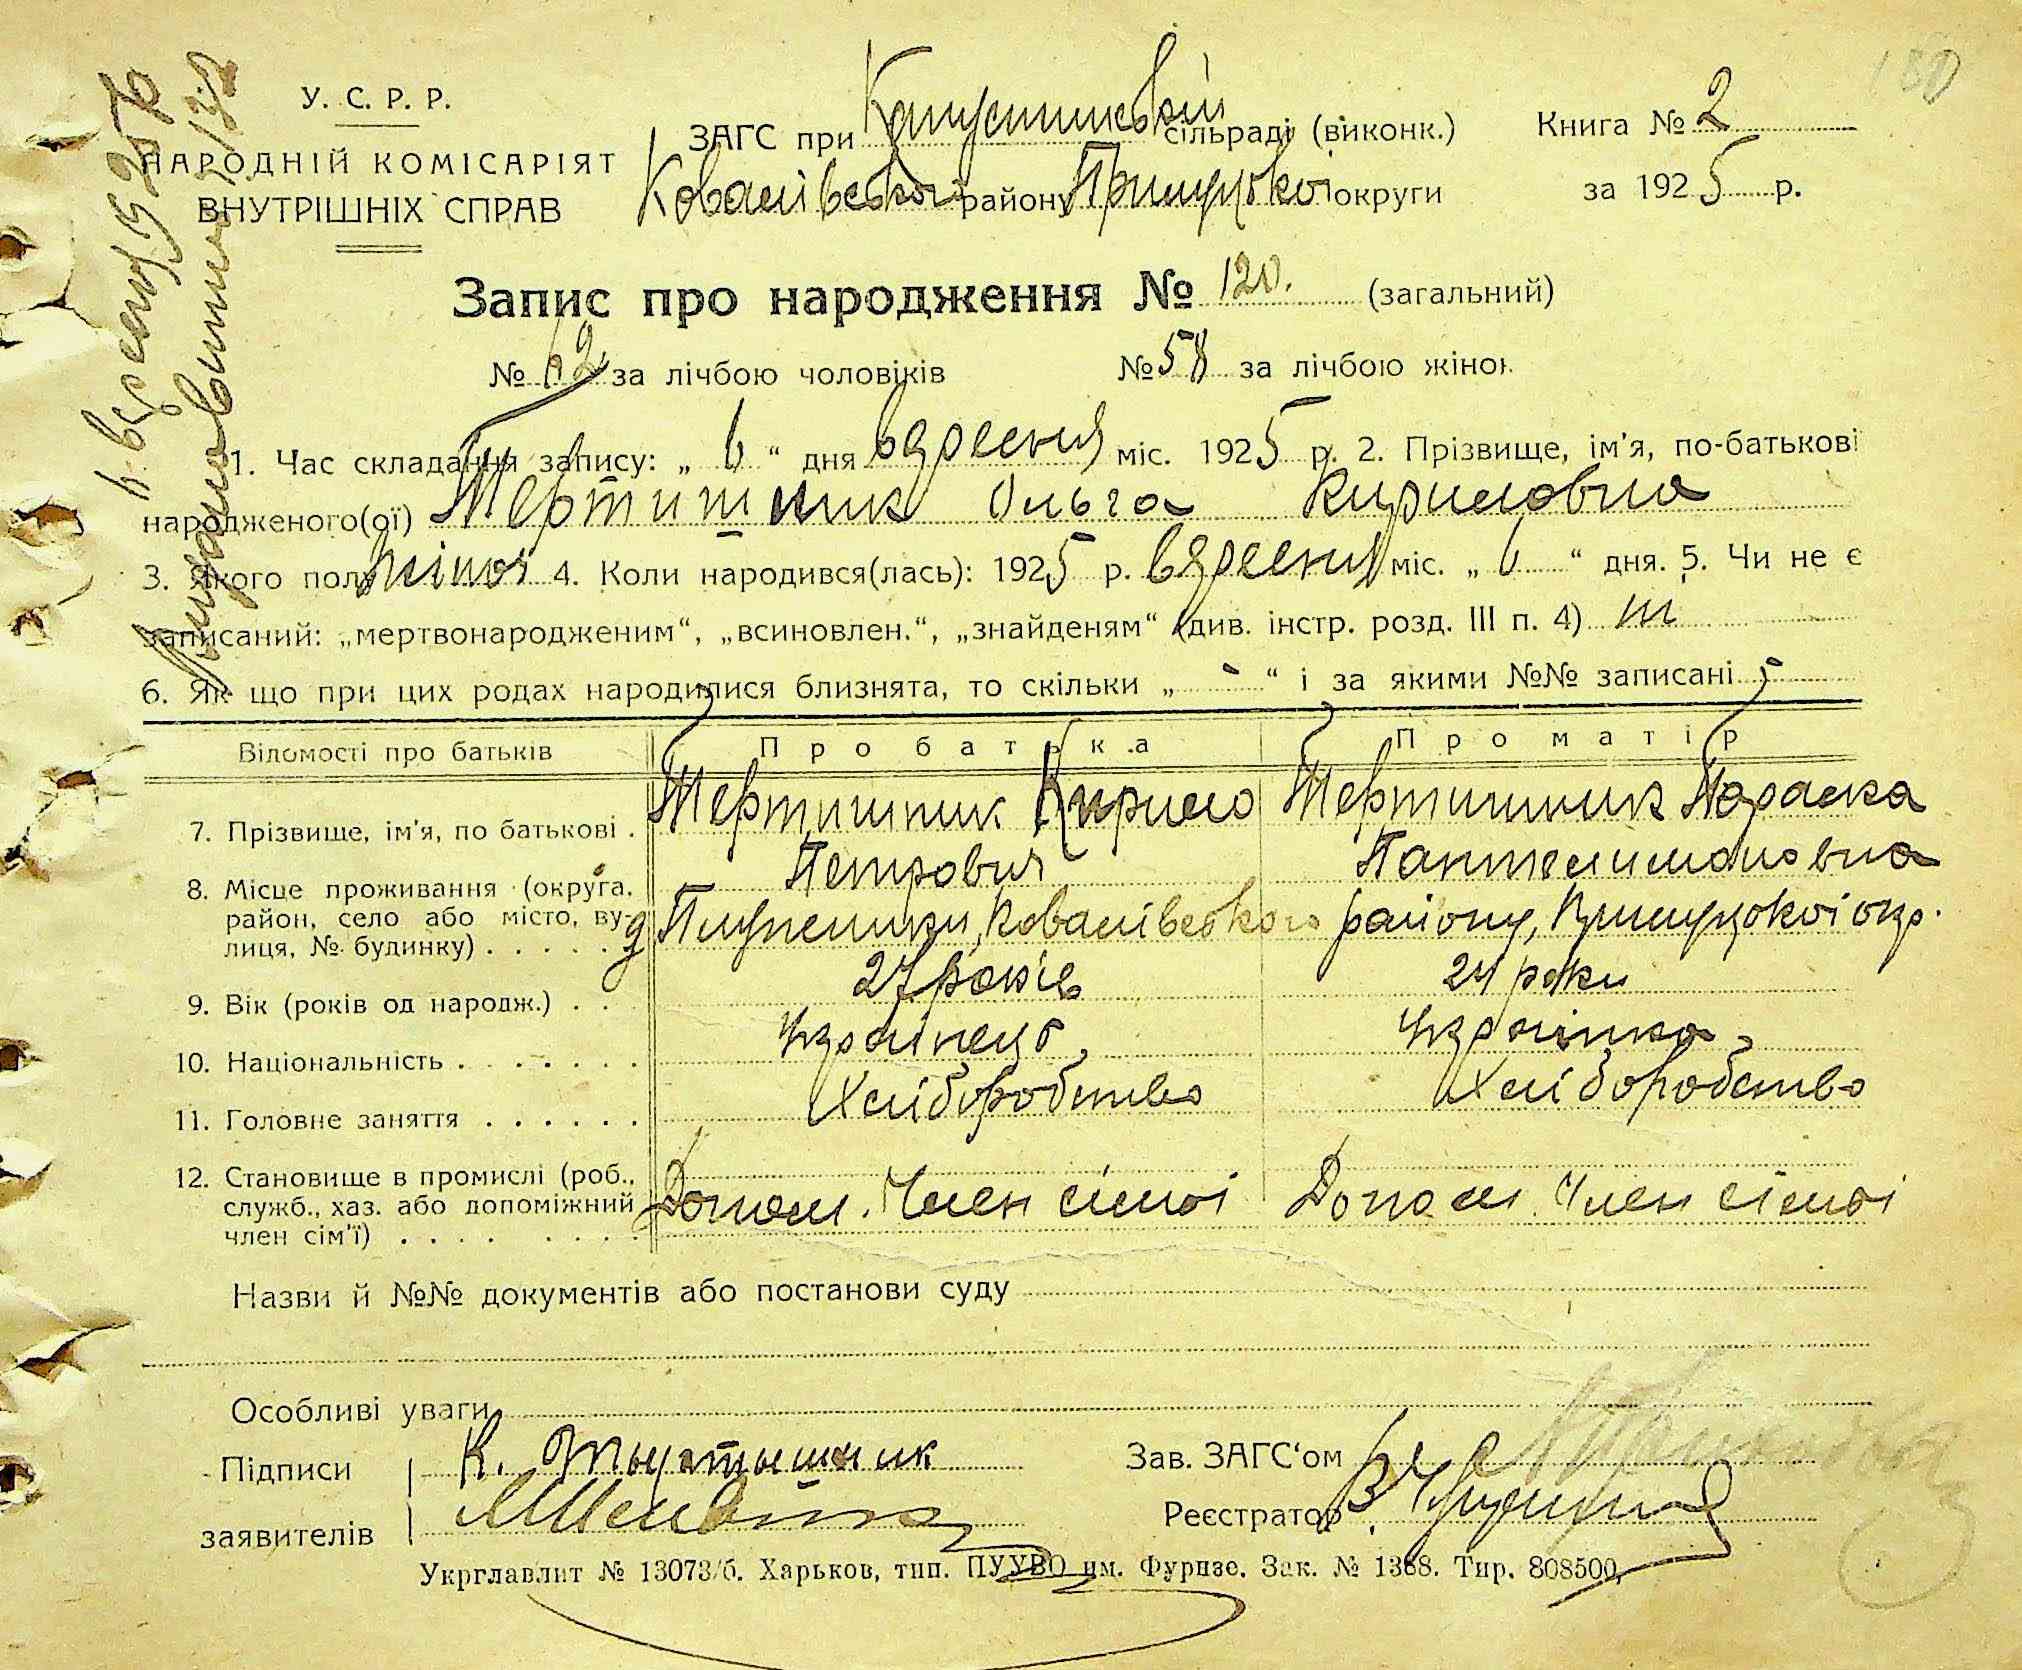 У. С. Р. Р.
НАРОДНІЙ КОМІСАРІЯТ
ВНУТРІШНІХ СПРАВ
ЗАГС при Капустинській сільраді (виконк.)
Ковалівського району Прилуцької округи
Книга № 2
за 1925 р.
Запис про народження № 120. (загальний)
№ 62 за лічбою чоловіків № 58 за лічбою жінок
1. Час складання запису: „ 6 “ дня вересня міс. 1925 р. 2. Прізвище, ім'я, по-батькові
народженого(ої) Тертишник Ольга Кириловна
3. Якого полу жіноч 4. Коли народився(лась): 1925 р. вересня міс. „ 6 “ дня. 5. Чи не є
записаний: „мертвонародженим“, „всиновлен.“, „знайденям“ (див. інстр. розд. III п. 4) ні
6. Як що при цих родах народилися близнята, то скільки „ - “ і за якими №№ записані -
Відомості про батьків Про батька Про матір
7. Прізвище, ім'я, по батькові . Тертишник Кирило Тертишник Параска
Петрович Пантелимоновна
8. Місце проживання (округа, район, село або місто, вулиця, № будинку) . . . . . Ковалівського району, Прилуцької окр.
9. Вік (років од народж.) . . 27 років 24 роки
10. Національність . . . . . . . Українець Українка
11. Головне заняття . . . . . . Хліборобство Хліборобство
12. Становище в промислі (роб.,
служб., хаз. або допоміжний
член сім'ї) . . . . . . . . Допом. Член сімьі Допом. Член сімьі
Назви й №№ документів або постанови суду
Особливі уваги
Підписи
заявителів
К. Тыртышник
Зав. ЗАГС‘ом
Реєстратор
Укрглавлит № 13073/б. Харьков, тип. ПУУВО им. Фрунзе. Зак. № 1388. Тир. 808500,